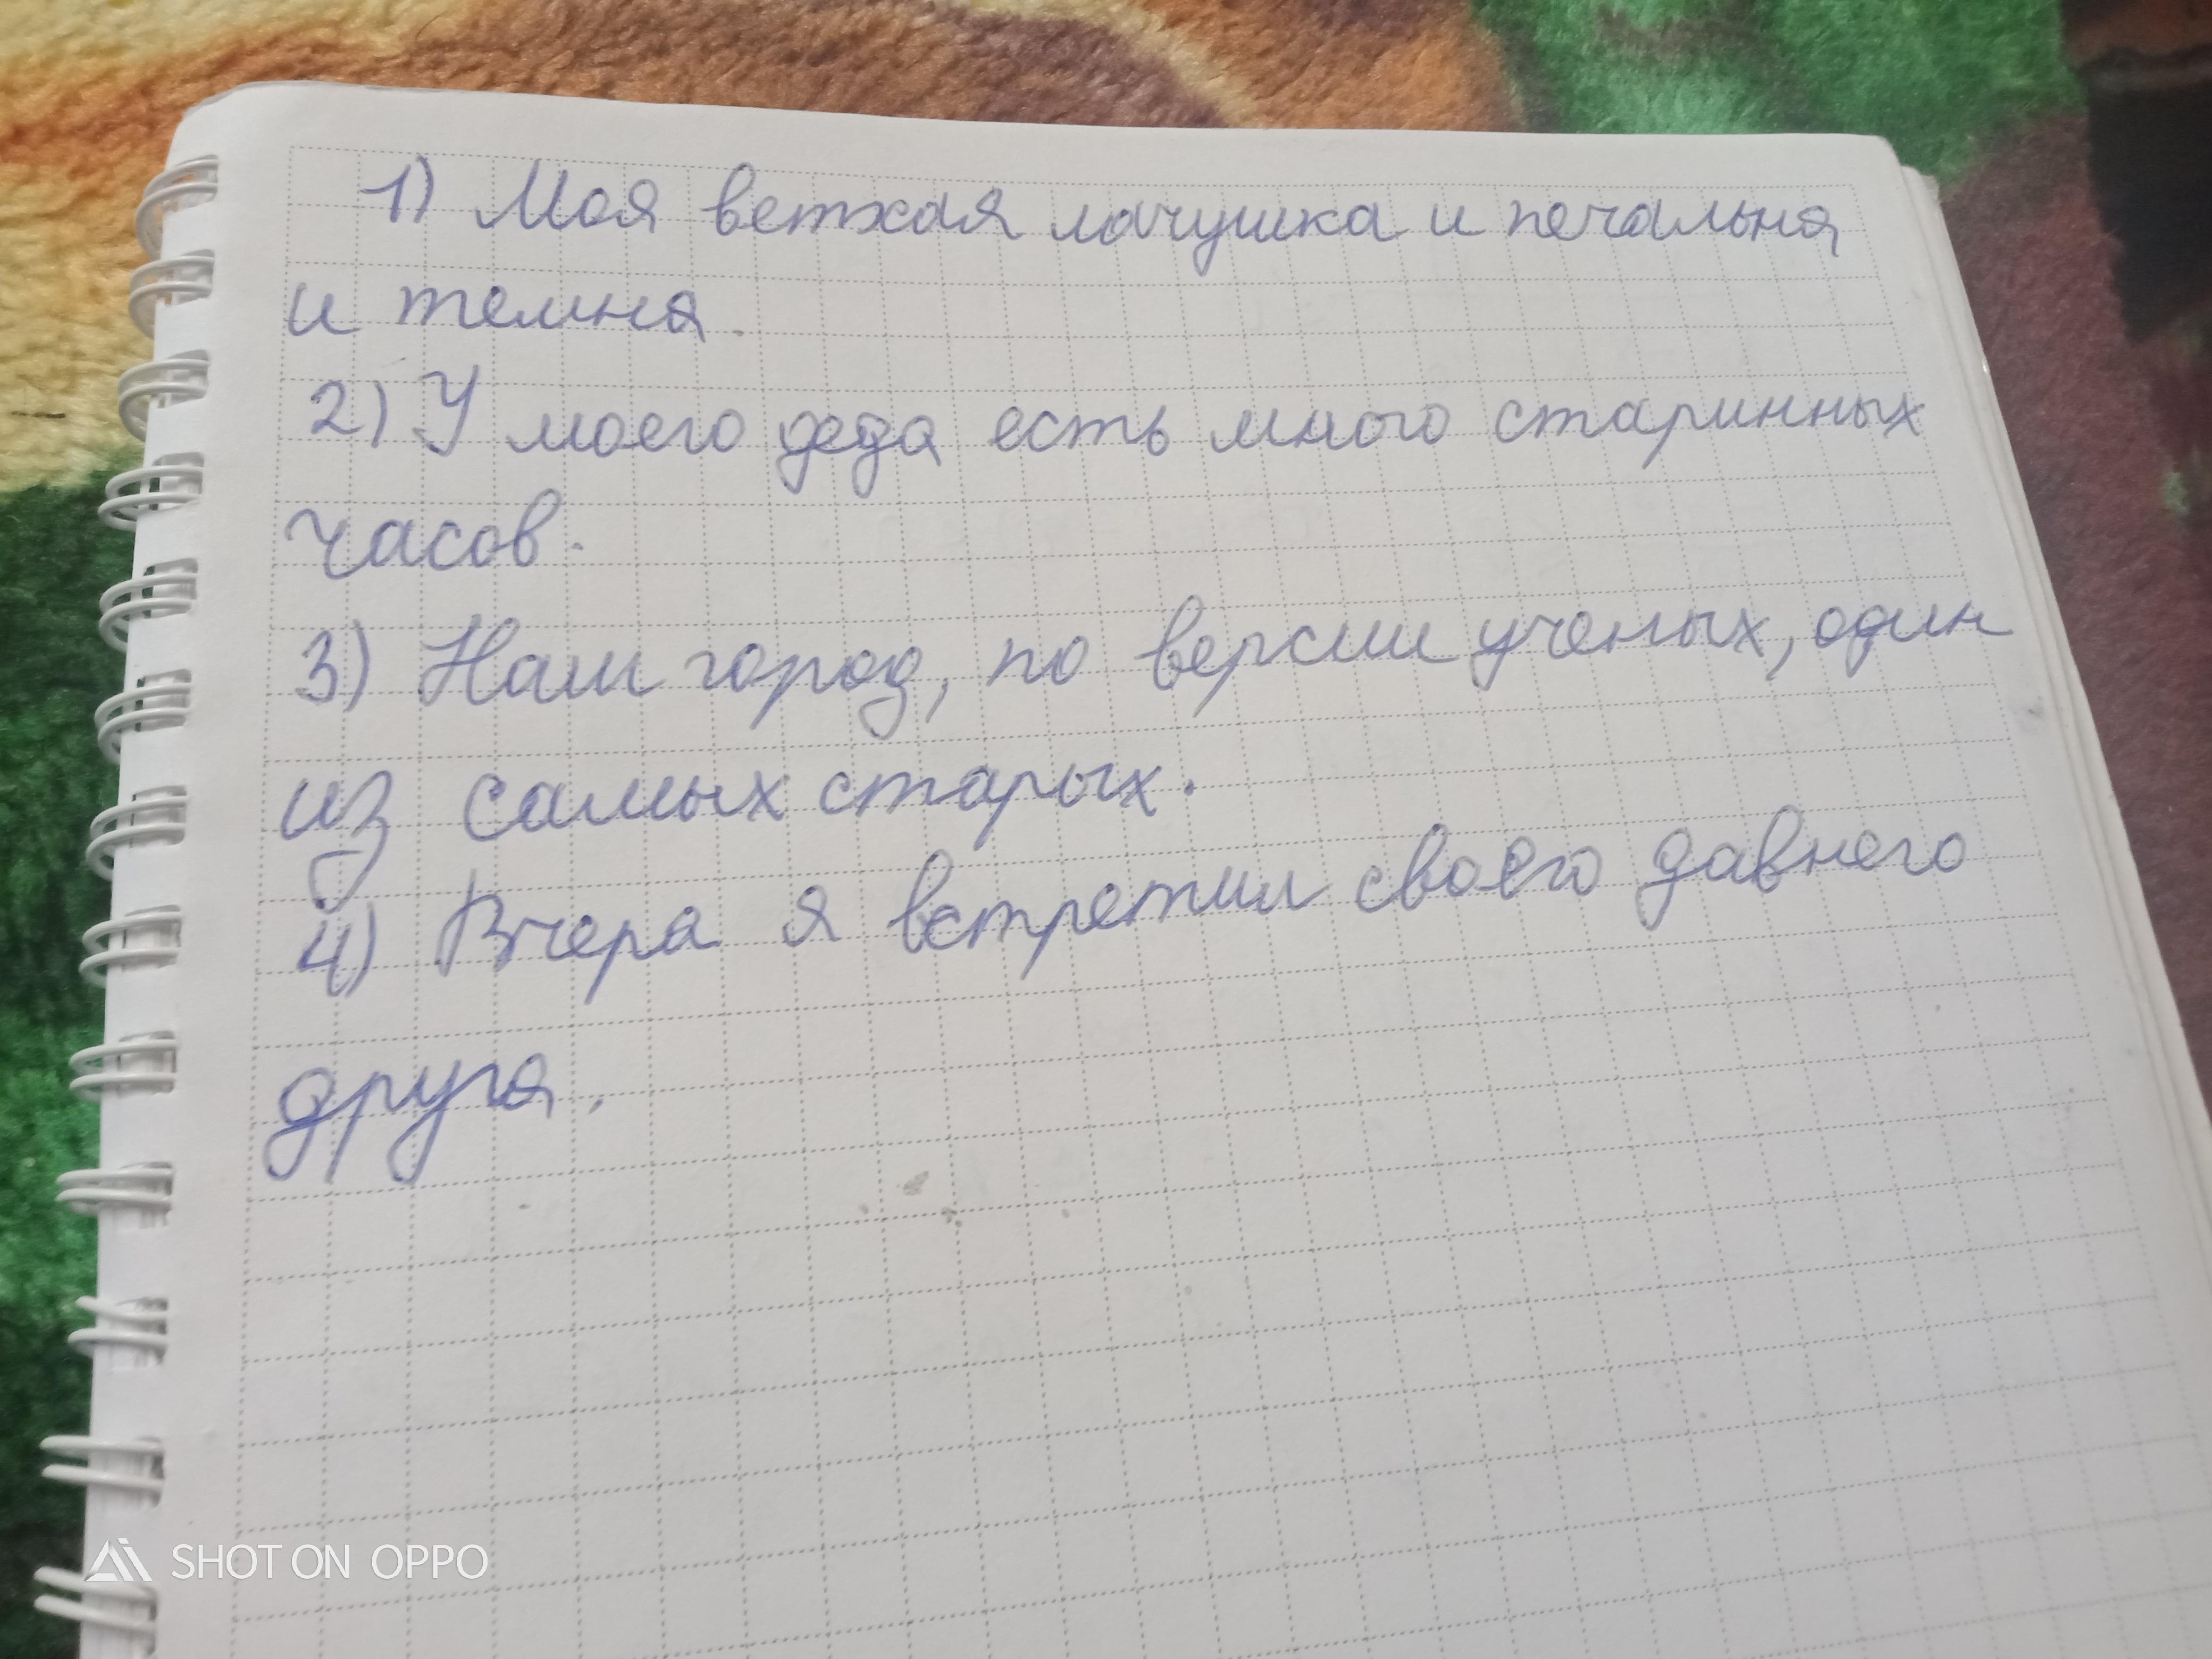 1) Моя ветхая лачушка и печальня
и темня.
2) У моего деда есть много старинных
часов.
3) Наш город, по версии ученых, один
из самых старых.
4) Вчера я встретил своего давнего
друга.
SHOT ON OPPO